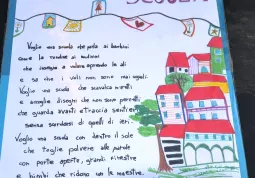 SCUOLA
Voglio una scuola che parla ai bambini
come la rondine ai rondinini
che insegna a volare aprendo le ali
e sa che i voli non sono mai uguali.
Voglio una scuola che scavalca monti
e accoglie disegni che non sono pronti
che guarda avanti e traccia sentieri
senza scordarsi di quelli di ieri.
Voglio una scuola con dentro il sole
che toglie polvere alle parole
con porte aperte, grandi finestre
e bimbi che ridono con le maestre.